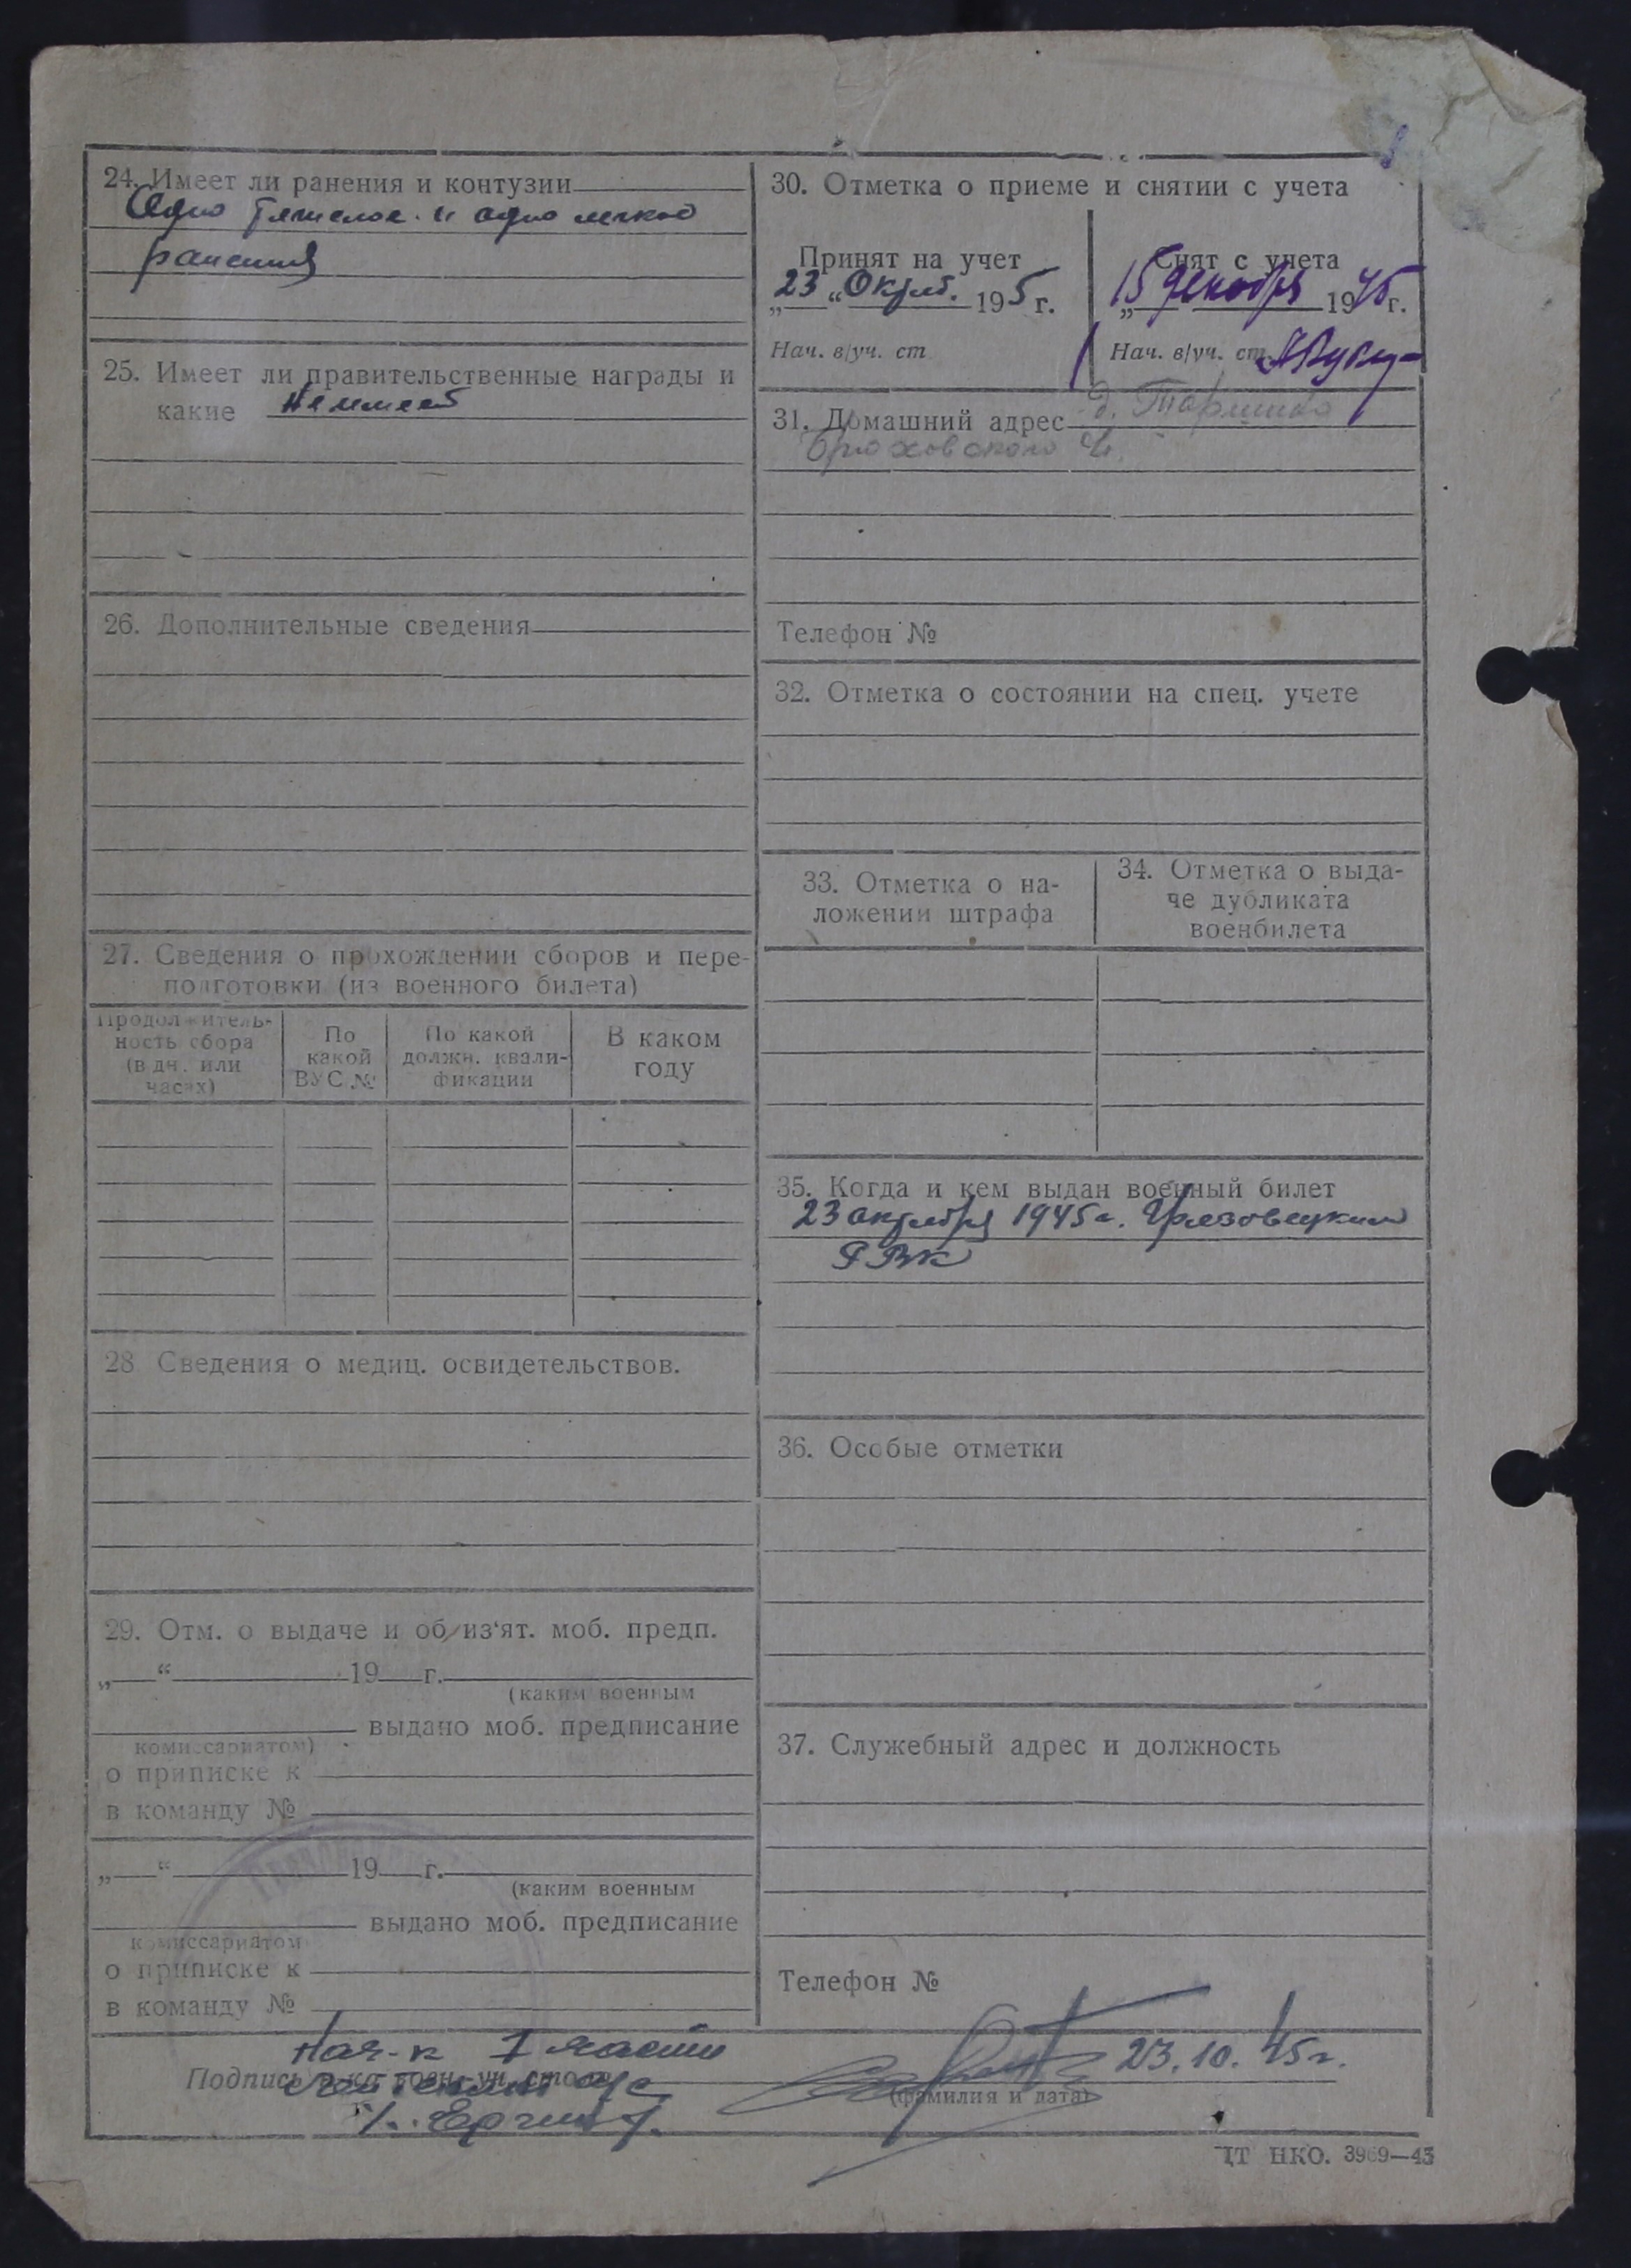 24. Имеет ли ранения и контузии
Одно тяжелое и одно легкое
ранения
25. Имеет ли правительственные награды и
какие Не имеет
26. Дополнительные сведения
27. Сведения о прохождении сборов и пере-
подготовки (из военного билета)
Продолжитель-
ность сбора
(в дн. или
часах)
По
какой
ВУС №
По какой
должн. квали-
фикации
В каком
году
28. Сведения о медиц. освидетельствов.
29. Отм. о выдаче и об из‘ят. моб. предп.
„ “ 19 г.
(каким военным
выдано моб. предписание
комиссариатом)
о приписке к
в команду №
„ “ 19 г.
(каким военным
выдано моб. предписание
комиссариатом
о приписке к
в команду №
30. Отметка о приеме и снятии с учета
Принят на учет
23 “ Октяб. 195 г.
Нач. в/уч. ст
Снят с учета
„15 декабря 1945 г.
Нач. в/уч. ст.
31. Домашний адрес д.
Телефон №
32. Отметка о состоянии на спец. учете
33. Отметка о на-
ложении штрафа
34. Отметка о выда-
че дубликата
военбилета
35. Когда и кем выдан военный билет
23 октября 1945 г. Грязовецким
РВК
36. Особые отметки
37. Служебный адрес и должность
Телефон №
Нач-к 1 части
Подпись
23.10.45г.
(фамилия и дата)
ЦТ НКО. 3969—45